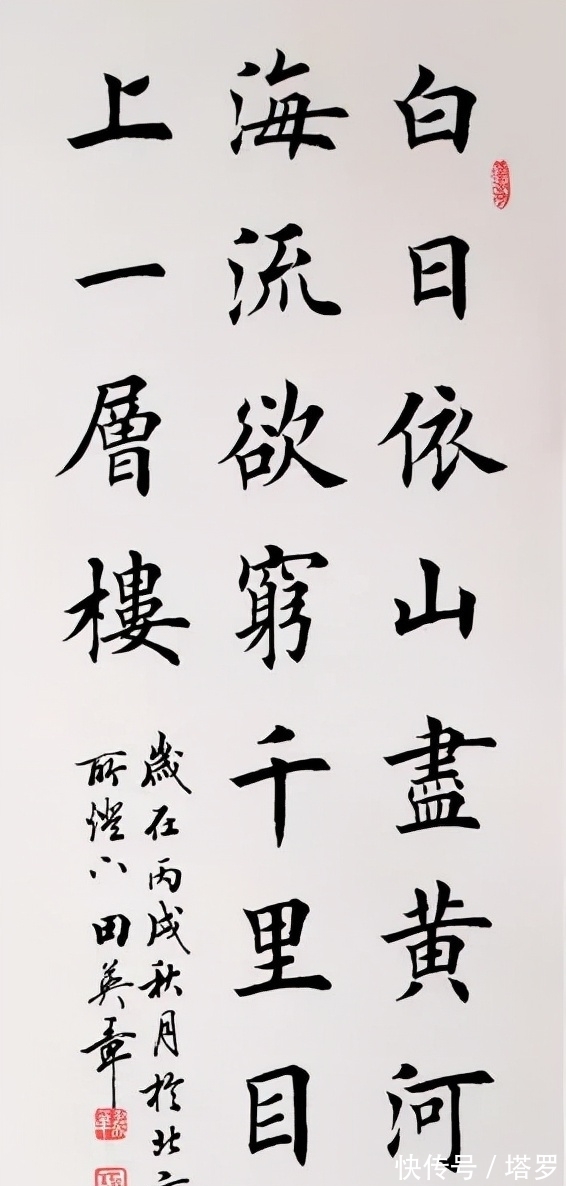 白日依山盡黄河
海流欲窮千里目
上一層樓
歲在丙戌秋月於北
所燈下田英章
快传号 / 塔罗